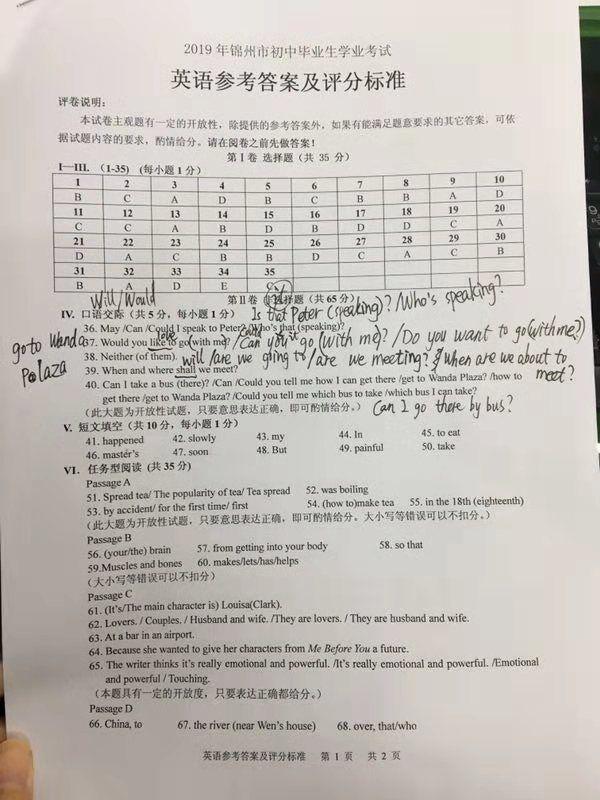 2019 年锦州市初中毕业生学业考试
英语参考答案及评分标准
评卷说明：
本试卷主观题有一定的开放性，除提供的参考答案外，如果有能满足题意要求的其它答案，可依
据试题内容的要求，酌情给分。请在阅卷之前先做答案！
第Ⅰ卷 选择题（共 35 分）
I—III.（1-35)（每小题 1 分）
1 2 3 4 5 6 7 8 9 10
B C A D B C B B A D
11 12 13 14 15 16 17 18 19 20
C C A B D B D D C A
21 22 23 24 25 26 27 28 29 30
D A C B B D C A C B
31 32 33 34 35
B A D E C
Will/Would
第Ⅱ卷 非选择题（共 65 分）
Is that Peter (speaking)? /Who's speaking?
IV. 口语交际（共 5 分，每小题 1 分）
36. May /Can /Could I speak to Peter? /Who's that (speaking)?
love Could
37. Would you like to go (with me)? /Can you go (with me)? /Do you want to go (with me?)
go to Wanda Plaza
38. Neither (of them). will /are we going to /are we meeting? when are we about to meet?
39. When and where shall we meet?
40. Can I take a bus (there)? /Can /Could you tell me how I can get there /get to Wanda Plaza? /how to
get there /get to Wanda Plaza? /Could you tell me which bus to take /which bus I can take?
（此大题为开放性试题，只要意思表达正确，即可酌情给分。） Can I go there by bus?
V. 短文填空（共 10 分，每小题 1 分）
41. happened 42. slowly 43. my 44. In 45. to eat
46. master's 47. soon 48. But 49. painful 50. take
VI. 任务型阅读 (共 35 分)
Passage A
51. Spread tea/ The popularity of tea/ Tea spread 52. was boiling
53. by accident/ for the first time/ first 54. (how to)make tea 55. in the 18th (eighteenth)
（此大题为开放性试题，只要意思表达正确，即可酌情给分。大小写等错误可以不扣分。）
Passage B
56. (your/the) brain 57. from getting into your body 58. so that
59.Muscles and bones 60. makes/lets/has/helps
(大小写等错误可以不扣分)
Passage C
61. (It's/The main character is) Louisa(Clark).
62. Lovers. / Couples. / Husband and wife. /They are lovers. / They are husband and wife.
63. At a bar in an airport.
64. Because she wanted to give her characters from Me Before You a future.
65. The writer thinks it's really emotional and powerful. /It's really emotional and powerful. /Emotional
and powerful / Touching.
（本题具有一定的开放度，只要表达正确都给分。）
Passage D
66. China, to 67. the river (near Wen's house) 68. over, that/who
英语参考答案及评分标准 第 1 页 共 2 页